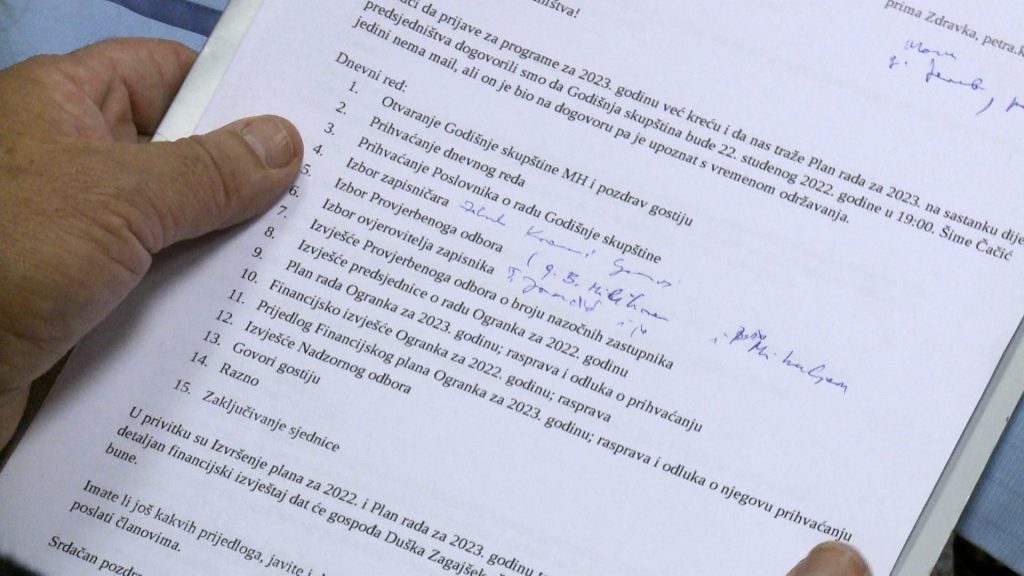 prima Zdravka, petra.k
da prijave za programe za 2023. godinu već kreću i da nas traže Plan rada za 2023. na sastanku
predsjedništva dogovorili smo da Godišnja skupština bude 22. studenog 2022. godine u 19:00. Šime Čačić
jedini nema mail, ali on je bio na dogovoru pa je upoznat s vremenom održavanja.
Dnevni red:
1. Otvaranje Godišnje skupštine MH i pozdrav gostiju
2. Prihvaćanje dnevnog reda
3. Prihvaćanje Poslovnika o radu Godišnje skupštine
4. Izbor zapisničara
5. Izbor Provjerbenoga odbora
6. Izbor ovjerovitelja zapisnika
7. Izvješće Provjerbenoga odbora o broju nazočnih zastupnika
8. Izvješće predsjednice o radu Ogranka za 2022. godinu
9. Plan rada Ogranka za 2023. godinu; rasprava i odluka o prihvaćanju
10. Financijsko izvješće Ogranka za 2022. godinu; rasprava
11. Prijedlog Financijskog plana Ogranka za 2023. godinu; rasprava i odluka o njegovu prihvaćanju
12. Izvješće Nadzornog odbora
13. Govori gostiju
14. Razno
15. Zaključivanje sjednice
U privitku su Izvršenje plana za 2022. i Plan rada za 2023. godinu
detaljan financijski izvještaj dat će gospođa Duška Zagajšek
bune.
Imate li još kakvih prijedloga, javite
poslati članovima.
Srdačan